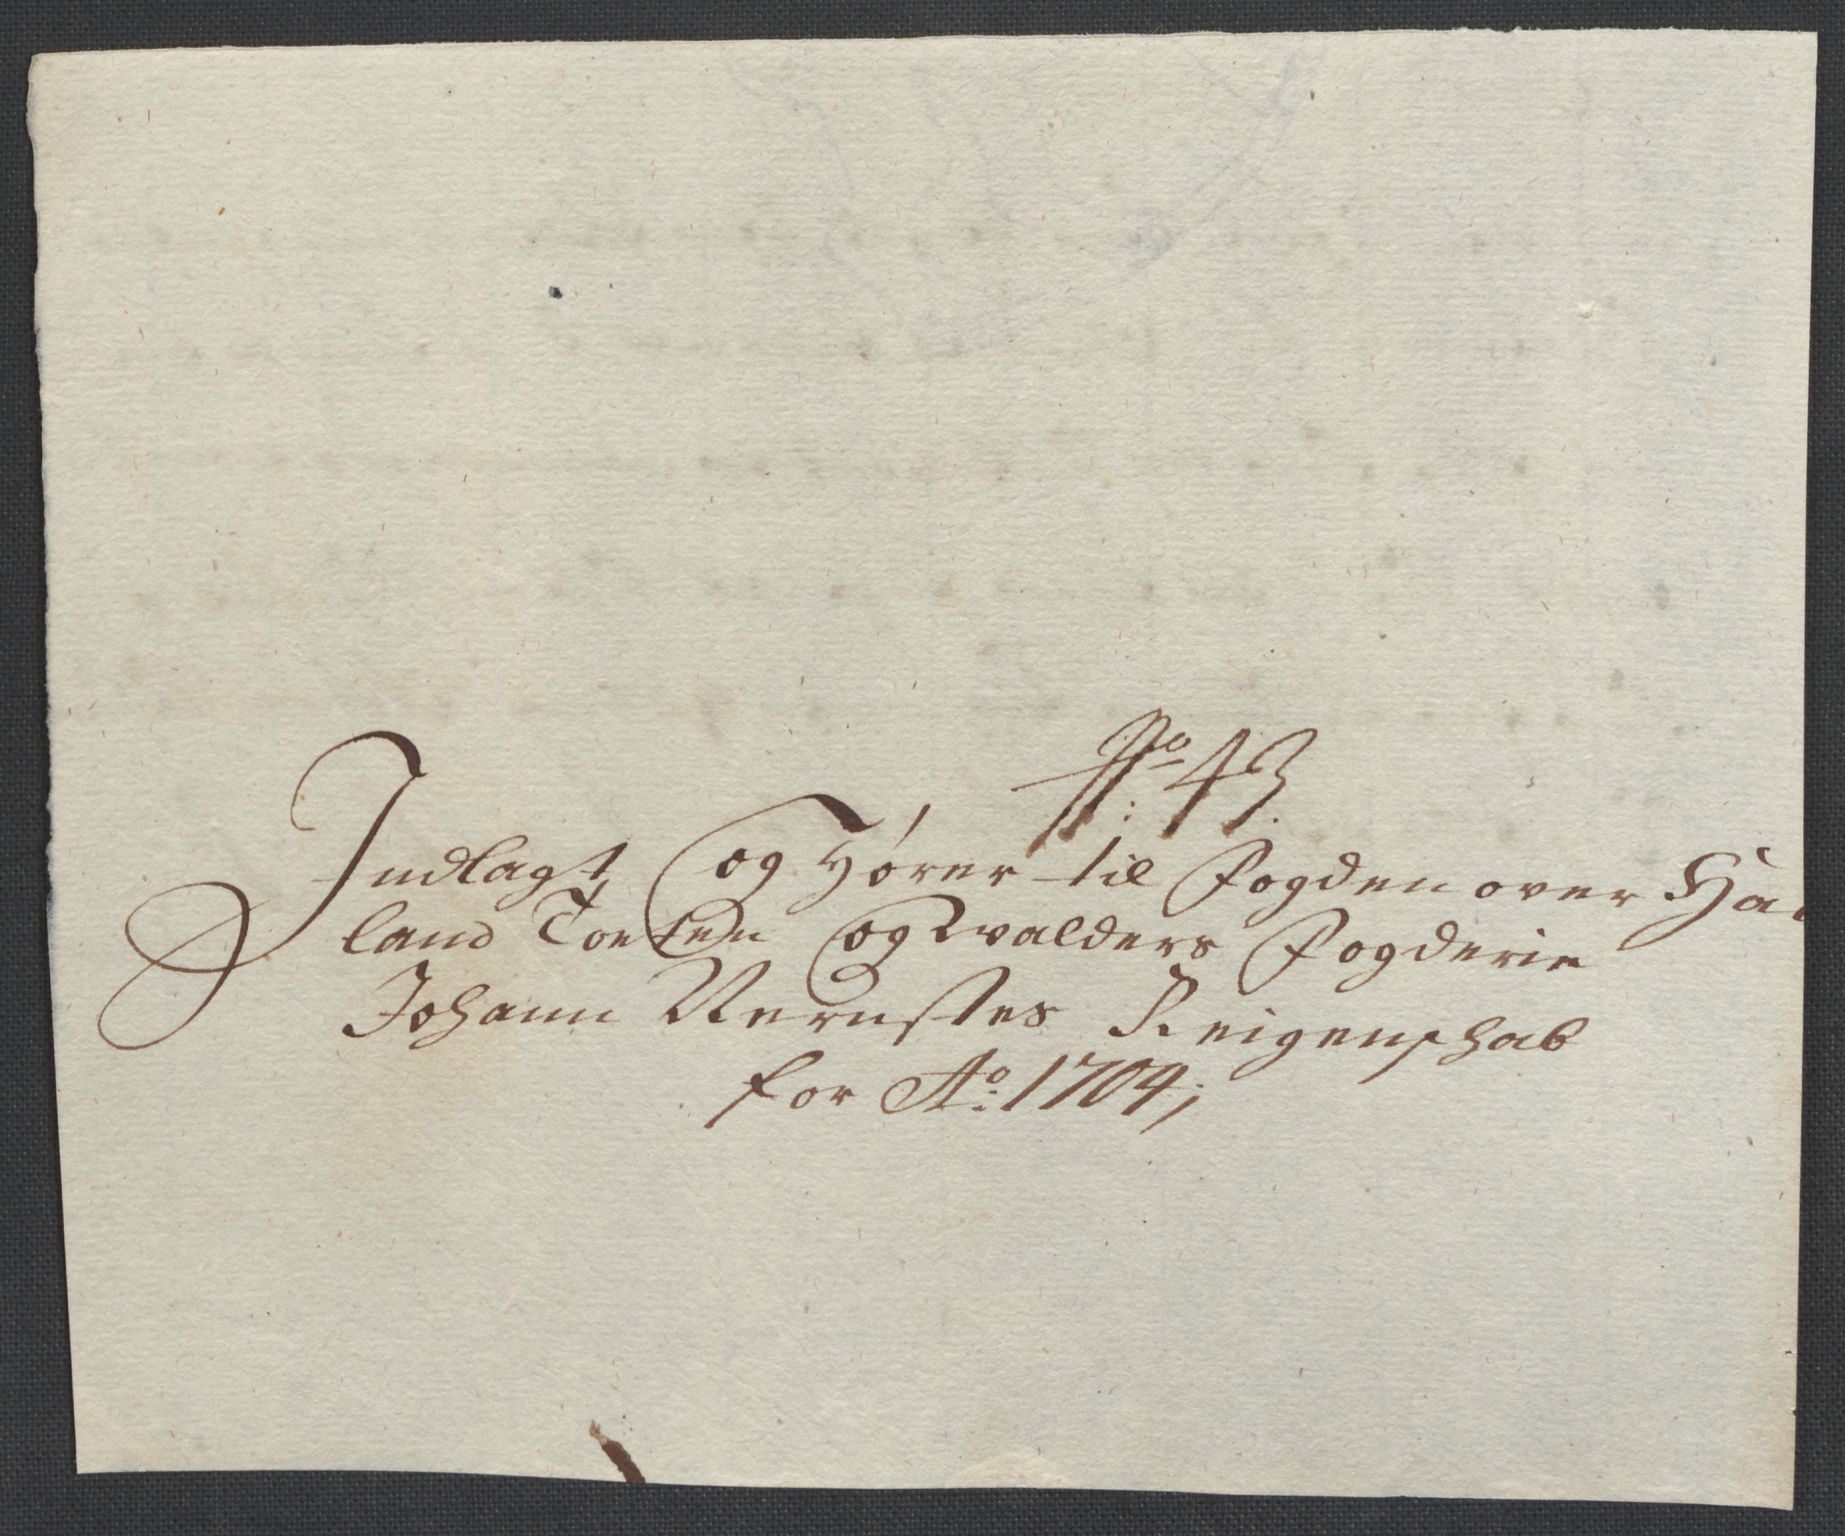 No: 43.
Indlagt, og hører til Fogden over Had
land Toeten og Walders Fogderie
Johann Nernstes Reigenskab
for Ao: 1704;